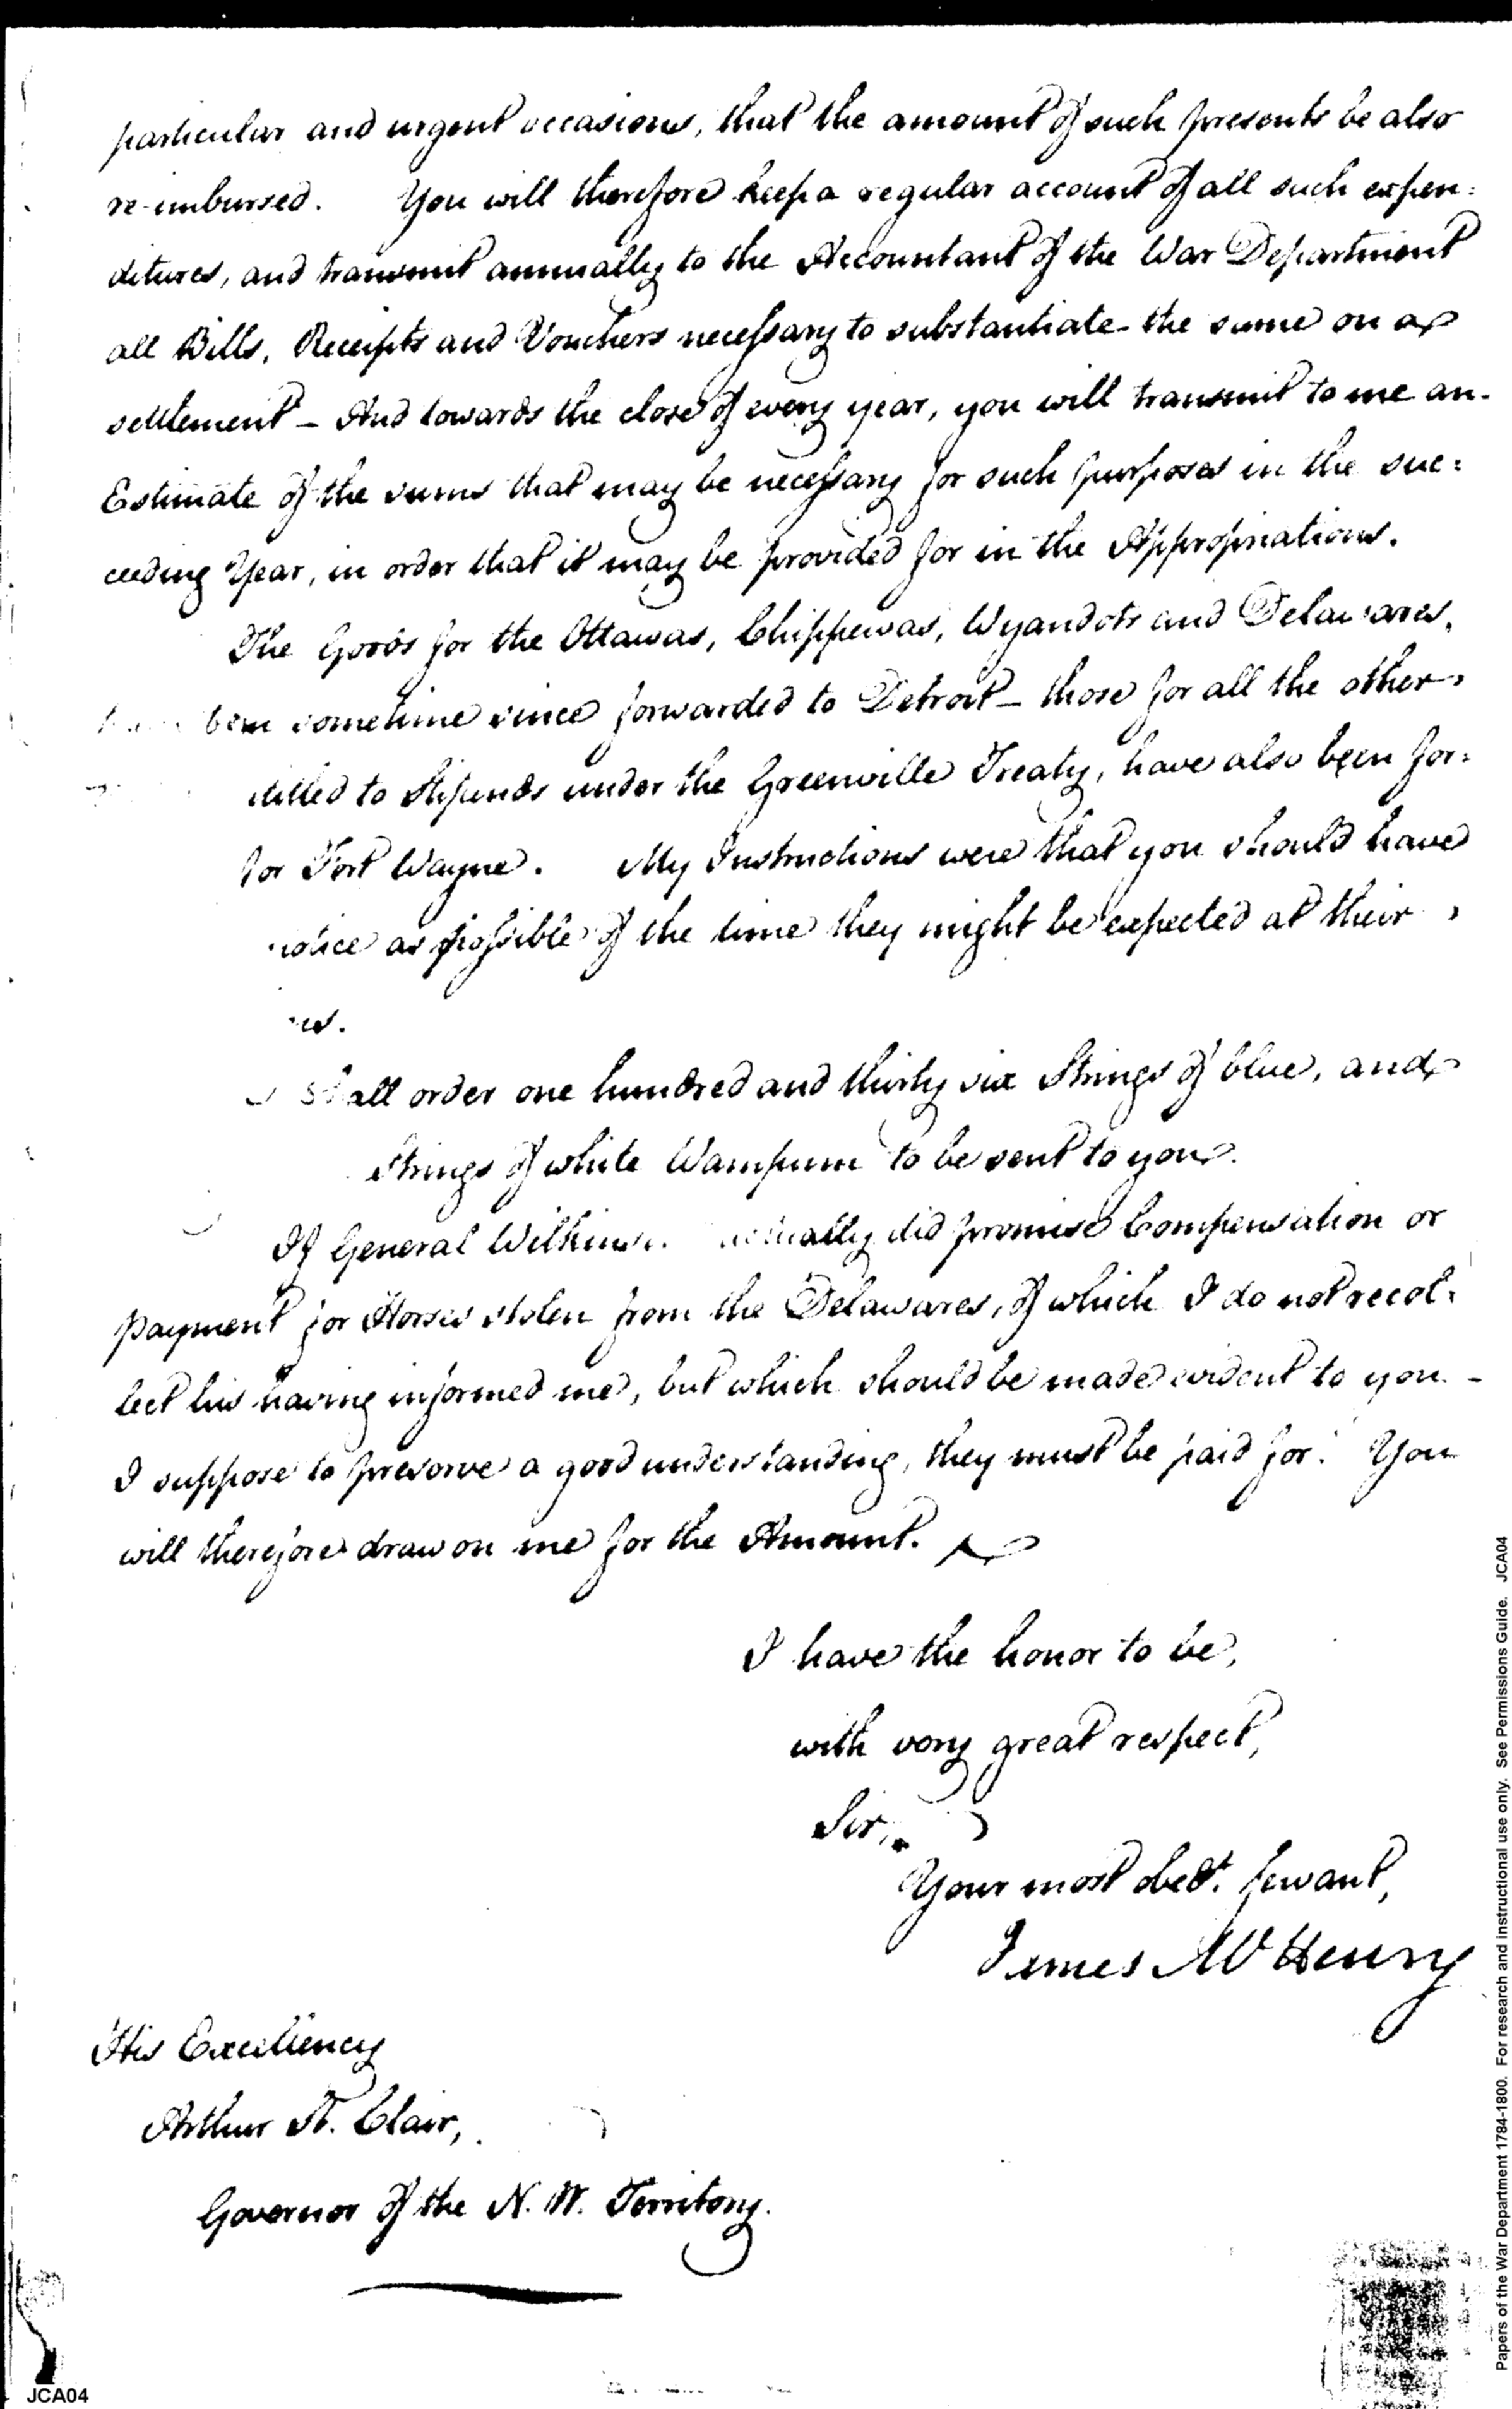 particular and urgent occasions, that the amount of such presents be also
re-imbursed. You will therefore keep a regular account of all such expen=
ditures, and transmit annually to the Accountant of the War Department
all Bills, Receipts and Vouchers necessary to substantiate the same on a
settlement – And towards the close of every year, you will transmit to me an
Estimate of the sums that may be necessary for such purposes in the suc=
ceeding Year, in order that it may be provided for in the Appropriations.
The Goods for the Ottawas, Chippewas, Wyandots and Delawares,
been sometime since forwarded to Detroit – those for all the other
titled to Stipends under the Greenville Treaty, have also been for=
for Fort Wayne. My Instructions were that you should have
notice as possible of the time they might be expected at their
shall order one hundred and thirty six Strings of blue, and
Strings of white Wampum to be sent to you.
If General Wilkinson actually did promise Compensation or
payment for Horses stolen from the Delawares, of which I do not recol=
lect his having informed me, but which should be made evident to you –
I suppose to preserve a good understanding, they must be paid for. You
will therefore draw on me for the Amount.
I have the honor to be,
with very great respect,
Sir,
Your most obedt. servant,
James McHenry
His Excellency
Arthur St. Clair,
Governor of the N. W. Territory.
JCA04
Papers of the War Department 1784-1800. For research and instructional use only. See Permissions Guide. JCA04